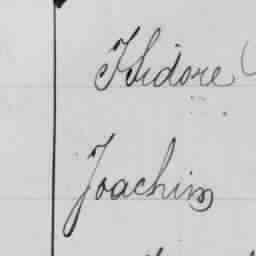 Isidore
Joachim